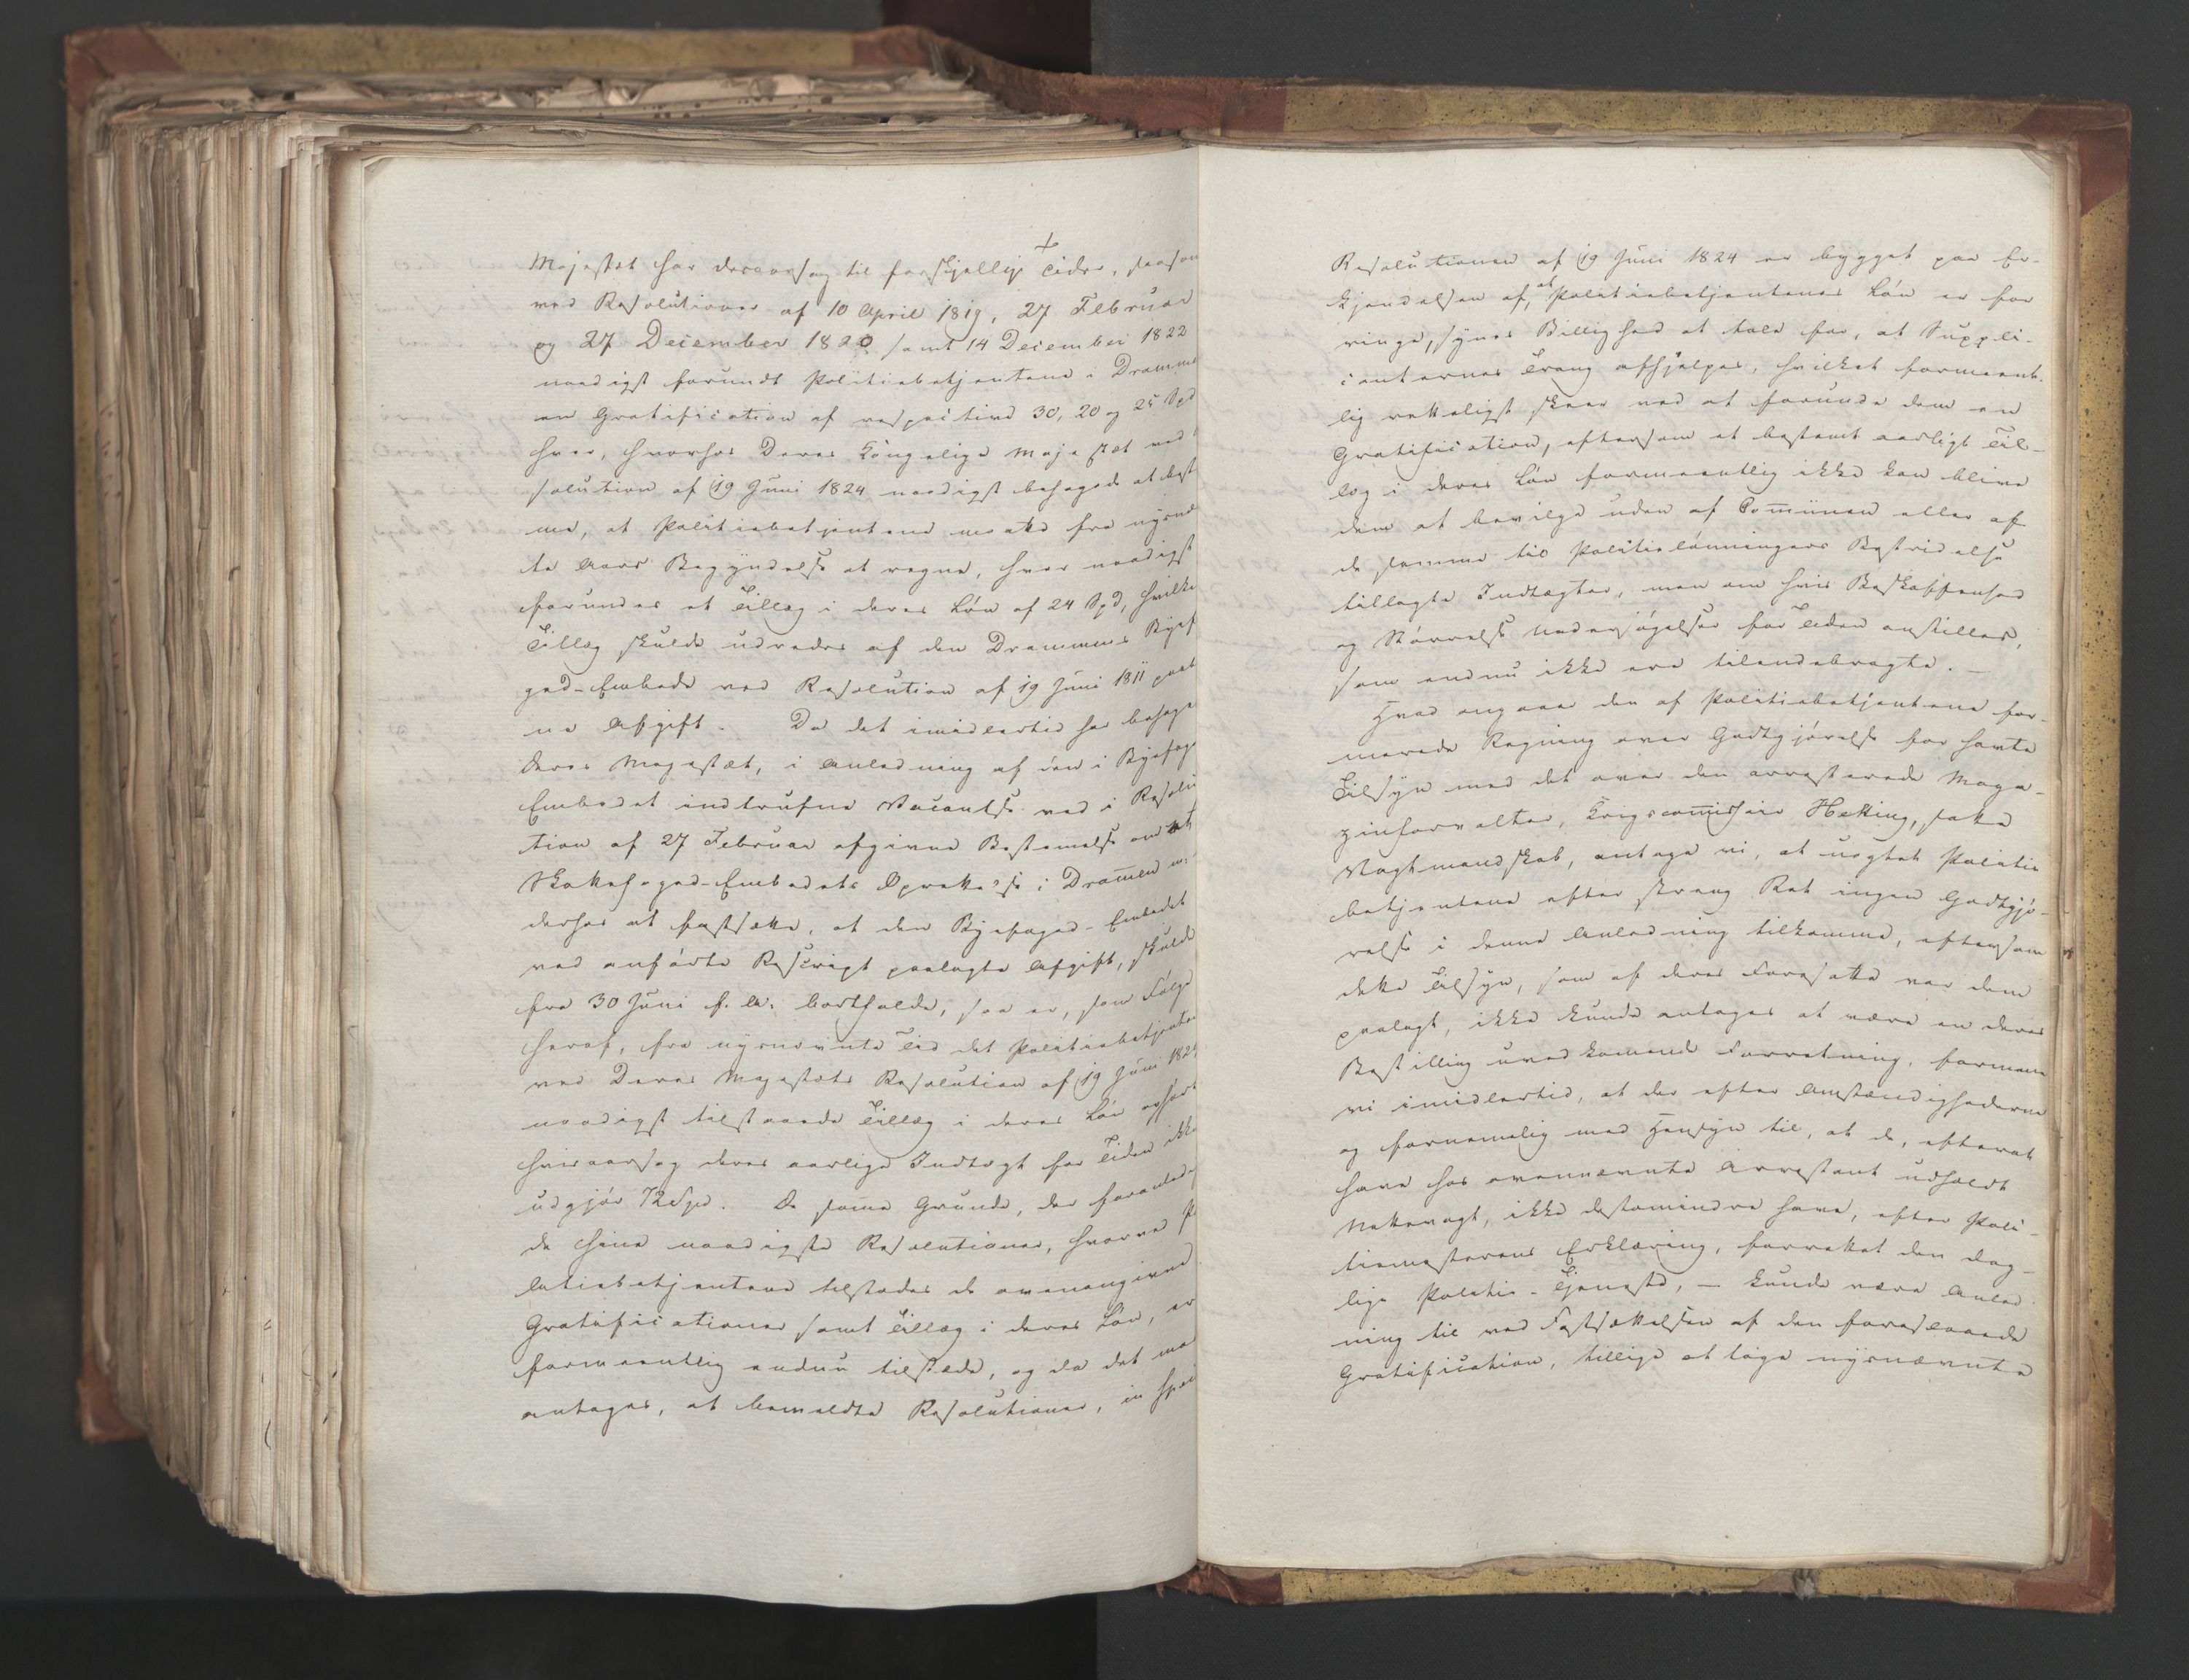 Majestæt har desaarsag til forskjellige Tider, saasom
ved Resolutioner af 10 April 1819, 27 Februar
og 27 December 1820 samt 14 December 1822
naadigst forundt Politiebetjentene i Dramme
en Gratification af respective 30, 20 og 25 Spd
hver, hvorhos Deres Kongelige Majestæt ved
solution af 19 Juni 1824 naadigst behagede at best
me, at Politiebetjentene maatte fra nysnæ
te Aars Begyndelse at regne, hver naadigst
forundes et Tillæg i deres Løn af 24 Spd, hvilke
Tillæg skulde udredes af den Drammens Byef
ged-Embede ved Resolution af 19 Juni 1811 paal
ne Afgift. Da det imidlertid har behage
Deres Majestæt, i Anledning af den i Byefoge
Embedet indtrufne Vacantse ved i Resolu
tion af 27 Februar afgivne Bestemelse om et
Skattefoged-Embedets Oprettelse i Dramen
derhos at fastsætte, at den Byefoged-Embedet
ved anførte Rescript paalagte Afgift, skulde
fra 30 Juni f. A. bortfalde, saa er, som Følge
heraf, fra nysnævnte Tid det Politiebetjente
ved Deres Majestæts Resolution af 19 Juni 1824
naadigst tilstaaede Tillæg i deres Løn ophørt
hvisaarsag deres aarlige Indtægt for Tiden ikke
udgjør 72 Spd. De same Grunde, der foranled
de hine naadigste Resolutioner, hvorved Po
litiebetjentene tilstodes de ovenangivne
Gratificationer samt Tillæg i deres Løn, er
formeentlig endnu tilstæde, og da det maa
antages, at bemeldte Resolutioner, in spe
Resolutionen af 19 Juni 1824 er bygget paa Er-
kjendelsen af, at Politiebetjentenes Løn er for
ringe, synes Billighed at tale for, at Suppli-
canternes Trang afhjelpes, hvilket formeent-
lig retteligst skeer ved at forunde dem en
Gratification, eftersom et bestemt aarligt Til-
læg i deres Løn formeentlig ikke kan blive
dem at bevilge uden af Comünen eller af
de samme til Politielønningers Bestridelse
tillagte Indtægter, men om hvis Beskaffenhed
og Størrelse Undersøgelser for Tiden anstilles,
som endnu ikke ere tilendebragte. —
Hvad angaaer den af Politiebetjentene for-
merede Regning over Godtgjørelse for havte
Tilsyn med det over den arresterede Maga-
zinforvalter, Krigscomissair Hetting, satte
Vagtmandskab, antage vi, at uagtet Politie
betjentene efter streng Ret ingen Godtgjø-
relse i denne Anledning tilkomme, eftersom
dette Tilsyn, som af deres Foresatte var dem
paalagt, ikke kunde antages at være en deres
Bestilling uvedkomende Forretning, formene
vi imidlertid, at der efter Omstændighederne
og fornemelig med Hensyn til, at de, efterat
have hos ovennævnte Arrestant udholdt
Nattevagt, ikke destomindre have, efter Poli-
tiemesterens Erklæring, forrettet den dag-
lige Politie-Tjeneste, — kunde være Anled-
ning til ved Fastsættelsen af den foreslaaede
Gratification, tillige at tage nysnævnte